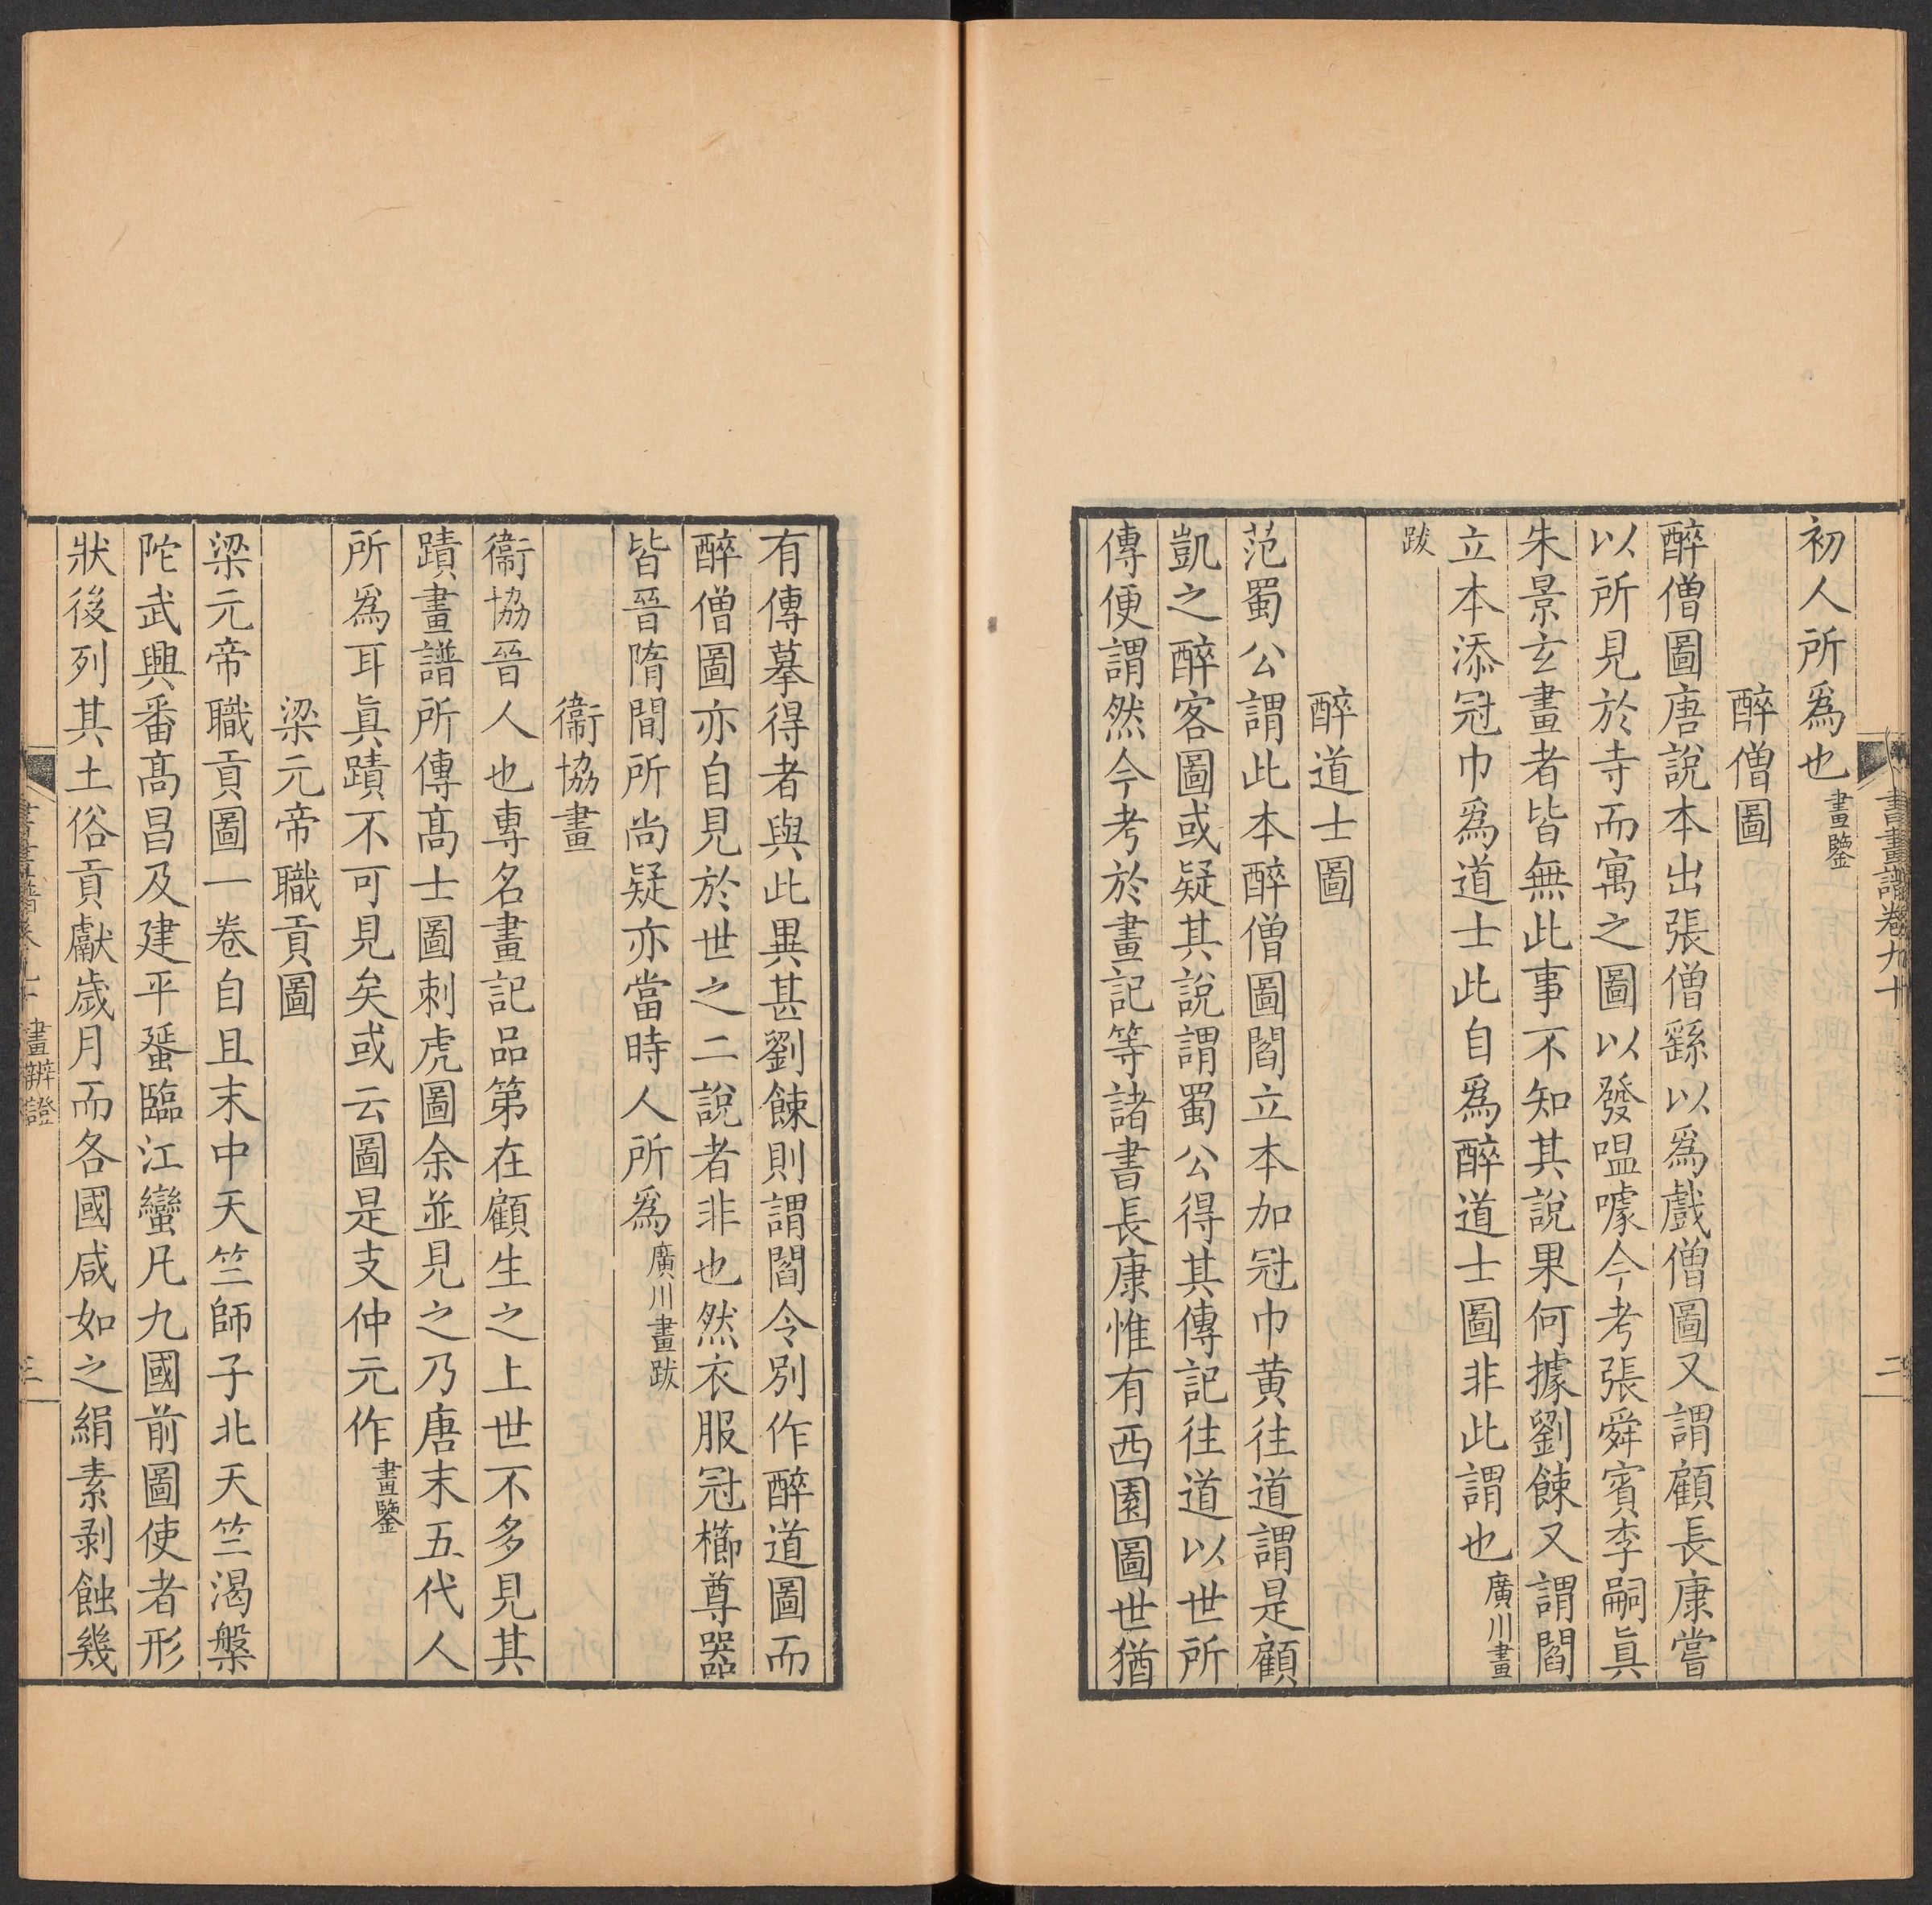 書畫譜卷九十
二
初人所爲也畫鑒
醉僧圖
醉僧圖唐說本出張僧繇以爲戲僧圖又謂顧長康嘗
以所見於寺而寓之圖以發嗢噱今考張舜賓李嗣眞
朱景玄畫者皆無此事不知其說果何據劉餗又謂閻
立本添冠巾爲道士此自爲醉道士圖非此謂也廣川畫
跋
醉道士圖
范蜀公謂此本醉僧圖閻立本加冠巾黄往道謂是顧
凱之醉客圖或疑其說謂蜀公得其傳記往道以世所
傳便謂然今考於畫記等諸書長康惟有西園圖世猶
有傳摹得者與此異甚劉餗則謂閻令別作醉道圖而
醉僧圖亦自見於世之二說者非也然衣服冠櫛尊器
皆晉隋間所尚疑亦當時人所爲廣川畫跋
衞協畫
衞協晉人也專名畫記品第在顧生之上世不多見其
蹟畫譜所傳髙士圖刺虎圖余並見之乃唐末五代人
所爲耳眞蹟不可見矣或云圖是支仲元作畫鑒
梁元帝職貢圖
梁元帝職貢圖一卷自且末中天竺師子北天竺渴槃
陀武興番髙昌及建平蜑臨江蠻凡九國前圖使者形
狀後列其土俗貢獻歲月而各國咸如之絹素剥蝕幾
書畫譜卷九十
畫辨證
三